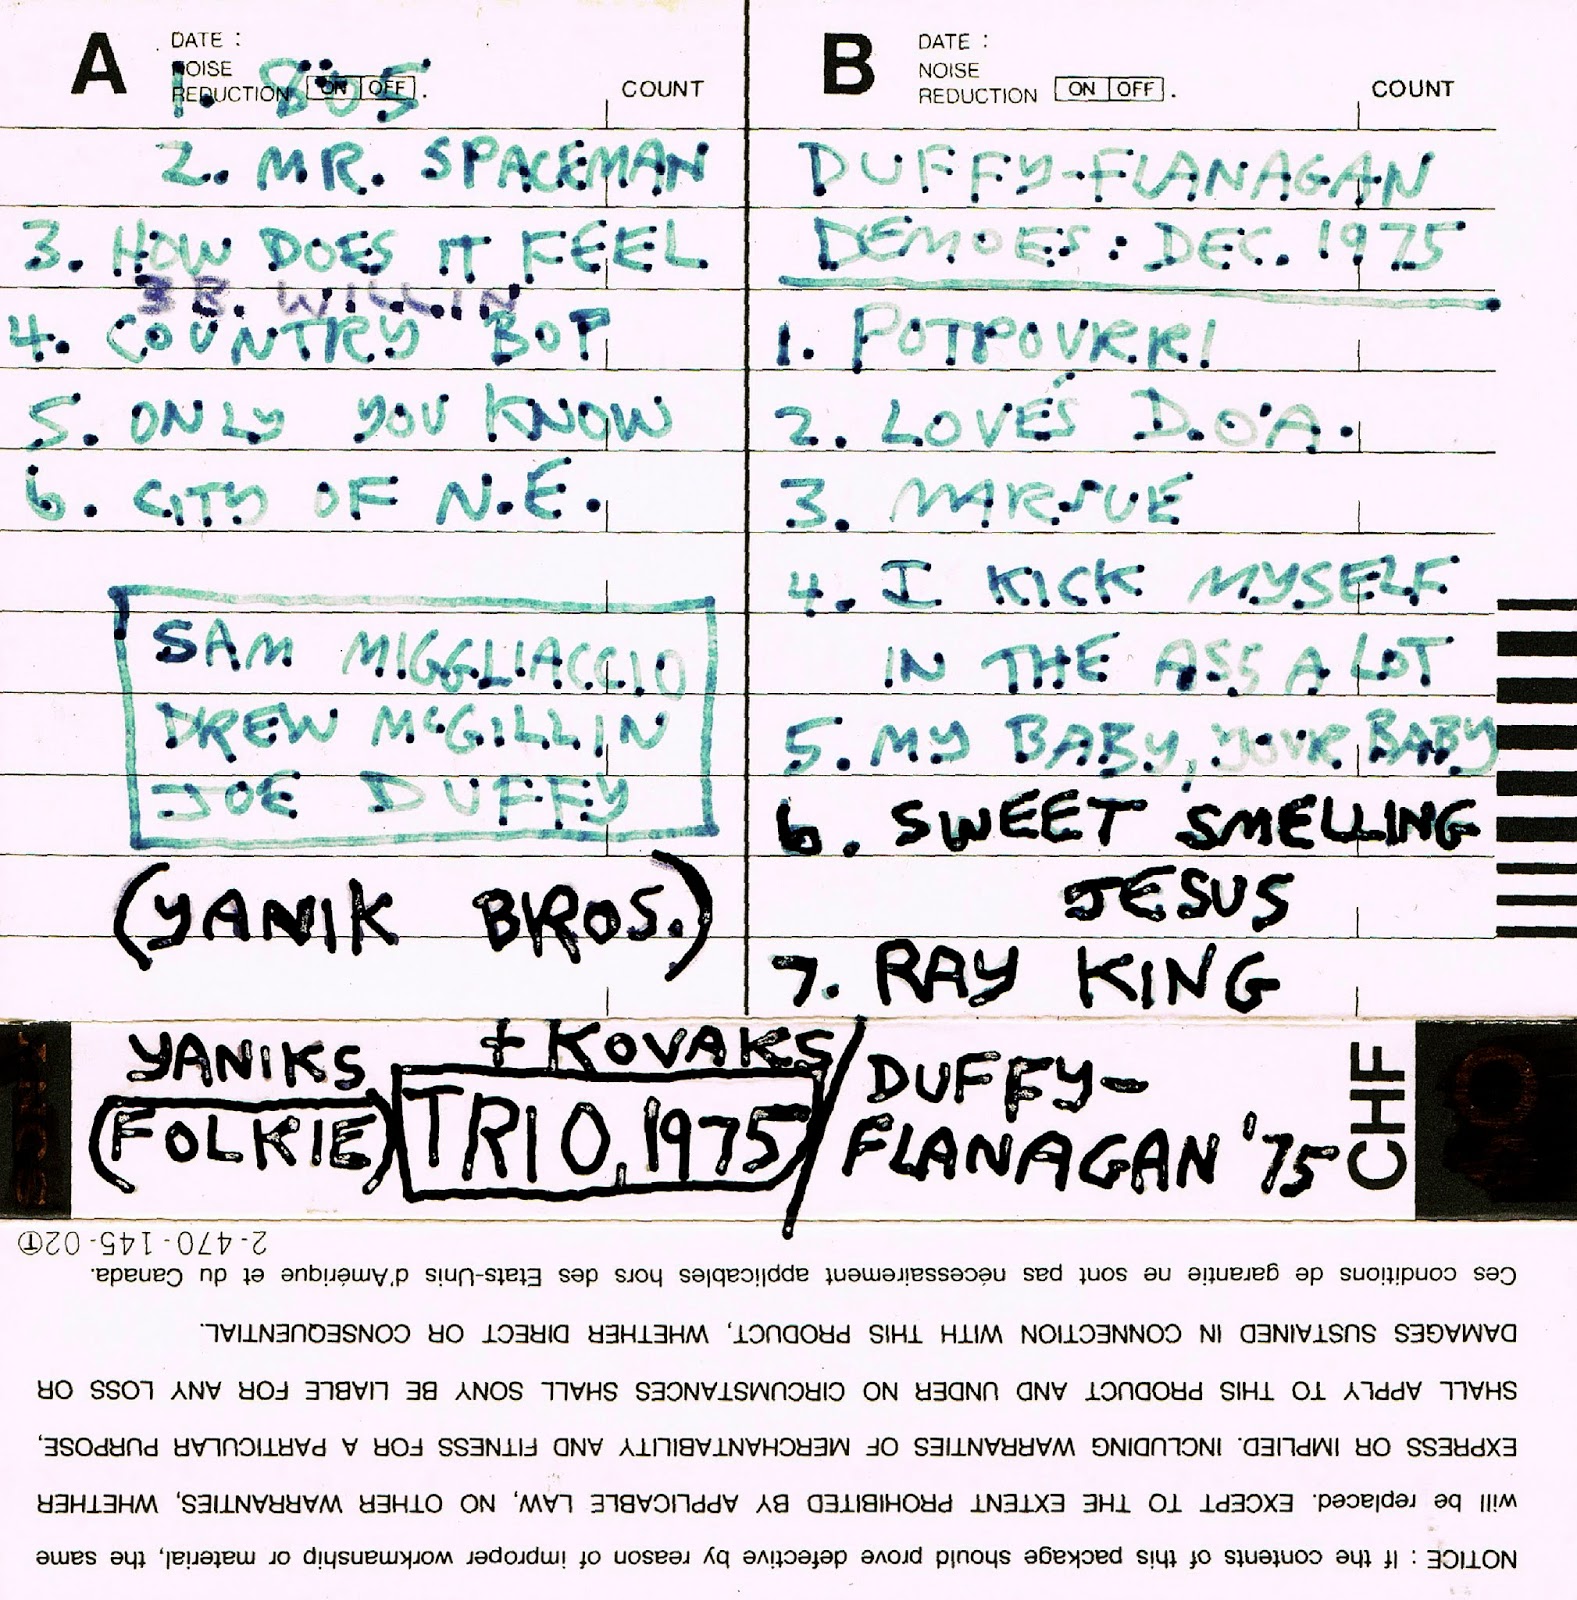 A
DATE :
NOISE
REDUCTION ON OFF .
COUNT
1. 805
2. MR. SPACEMAN
3. HOW DOES IT FEEL
3B. WILLIN
4. COUNTRY BOP
5. ONLY YOU KNOW
6. CITY OF N.E.
SAM MIGGLIACCIO
DREW McGILLIN
JOE DUFFY
(YANIK BROS.)
B
DATE :
NOISE
REDUCTION ON OFF .
COUNT
DUFFY-FLANAGAN
DEMOES: DEC. 1975
1. POTPOURRI
2. LOVE'S D.O.A.
3. MARSUE
4. I KICK MYSELF
IN THE ASS A LOT
5. MY BABY, YOUR BABY
6. SWEET SMELLING
JESUS
7. RAY KING
YANIKS + KOVAKS/
(FOLKIE) TRIO, 1975
DUFFY-
FLANAGAN '75
CHF
NOTICE : If the contents of this package should prove defective by reason of improper workmanship or material, the same
will be replaced. EXCEPT TO THE EXTENT PROHIBITED BY APPLICABLE LAW, NO OTHER WARRANTIES, WHETHER
EXPRESS OR IMPLIED. INCLUDING WARRANTIES OF MERCHANTABILITY AND FITNESS FOR A PARTICULAR PURPOSE,
SHALL APPLY TO THIS PRODUCT AND UNDER NO CIRCUMSTANCES SHALL SONY BE LIABLE FOR ANY LOSS OR
DAMAGES SUSTAINED IN CONNECTION WITH THIS PRODUCT, WHETHER DIRECT OR CONSEQUENTIAL.
Ces conditions de garantie ne sont pas nécessairement applicables hors des Etats-Unis d'Amérique et du Canada.
2-470-145-02Ⓣ